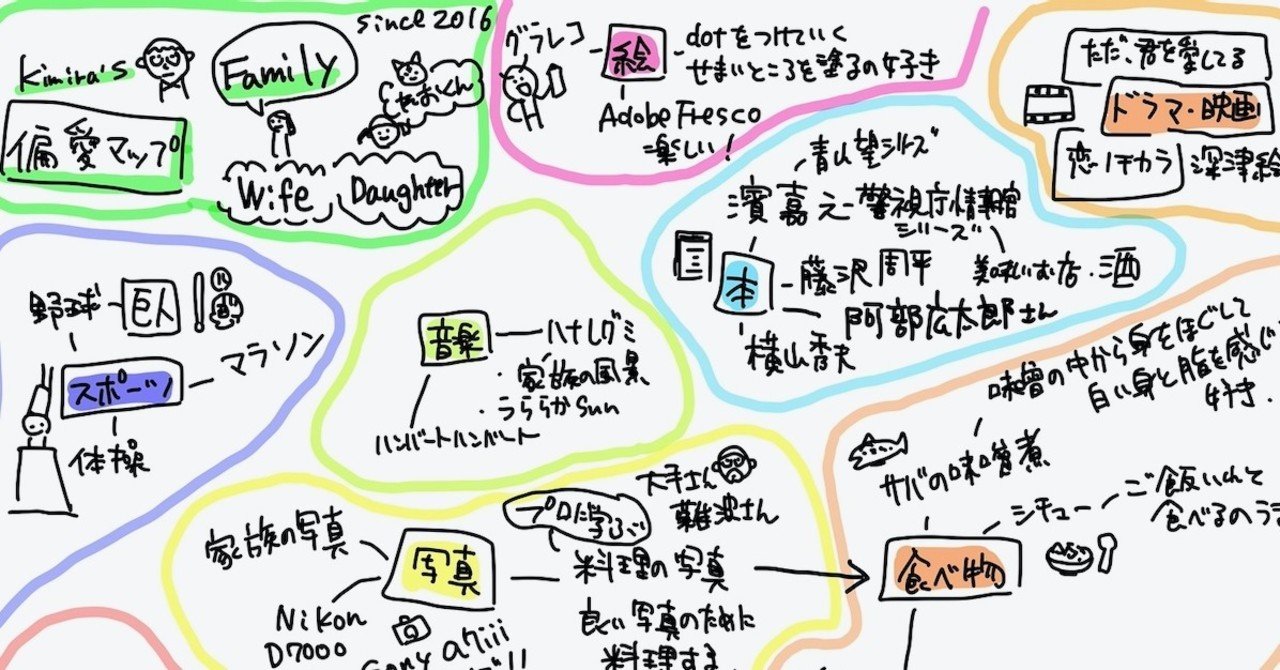 Kimira's
偏愛マップ
Family
since 2016
Wife
Daughter
グラレコ
絵
dotをつけていく
せまいところを塗るの好き
Adobe Fresco
楽しい!
ただ、君を愛してる
ドラマ・映画
恋ノチカラ
深津絵
青山望シリーズ
濱嘉之-警視庁情報官
シリーズ
美味しいお店・酒
本
藤沢周平
阿部広太郎さん
横山秀夫
野球
巨人
スポーツ
マラソン
体操
音楽
ハナレグミ
・家族の風景
・うららかSun
ハンバートハンバート
家族の写真
写真
Nikon
D7000
Sony α7iii
プロに学ぶ
大手さん
難波さん
料理の写真
良い写真のために
料理する
味噌の中から身をほぐして
白い身と脂を感じ
好き.
サバの味噌煮
シチュー
ご飯いれて
食べるのうま
食べ物